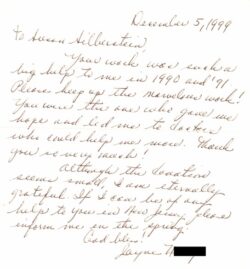 December 5, 1999
To Susan Silberstein,
Your work was such a
big help to me in 1990 and '91
Please keep up the marvelous work!
You were the one who gave me
hope and led me to doctors
who could help me more. Thank
you so very much!
Although the donation
seems small, I am eternally
grateful. If I can be of any
help to you in New Jersey please
inform me in the spring.
God bless!
Jayne